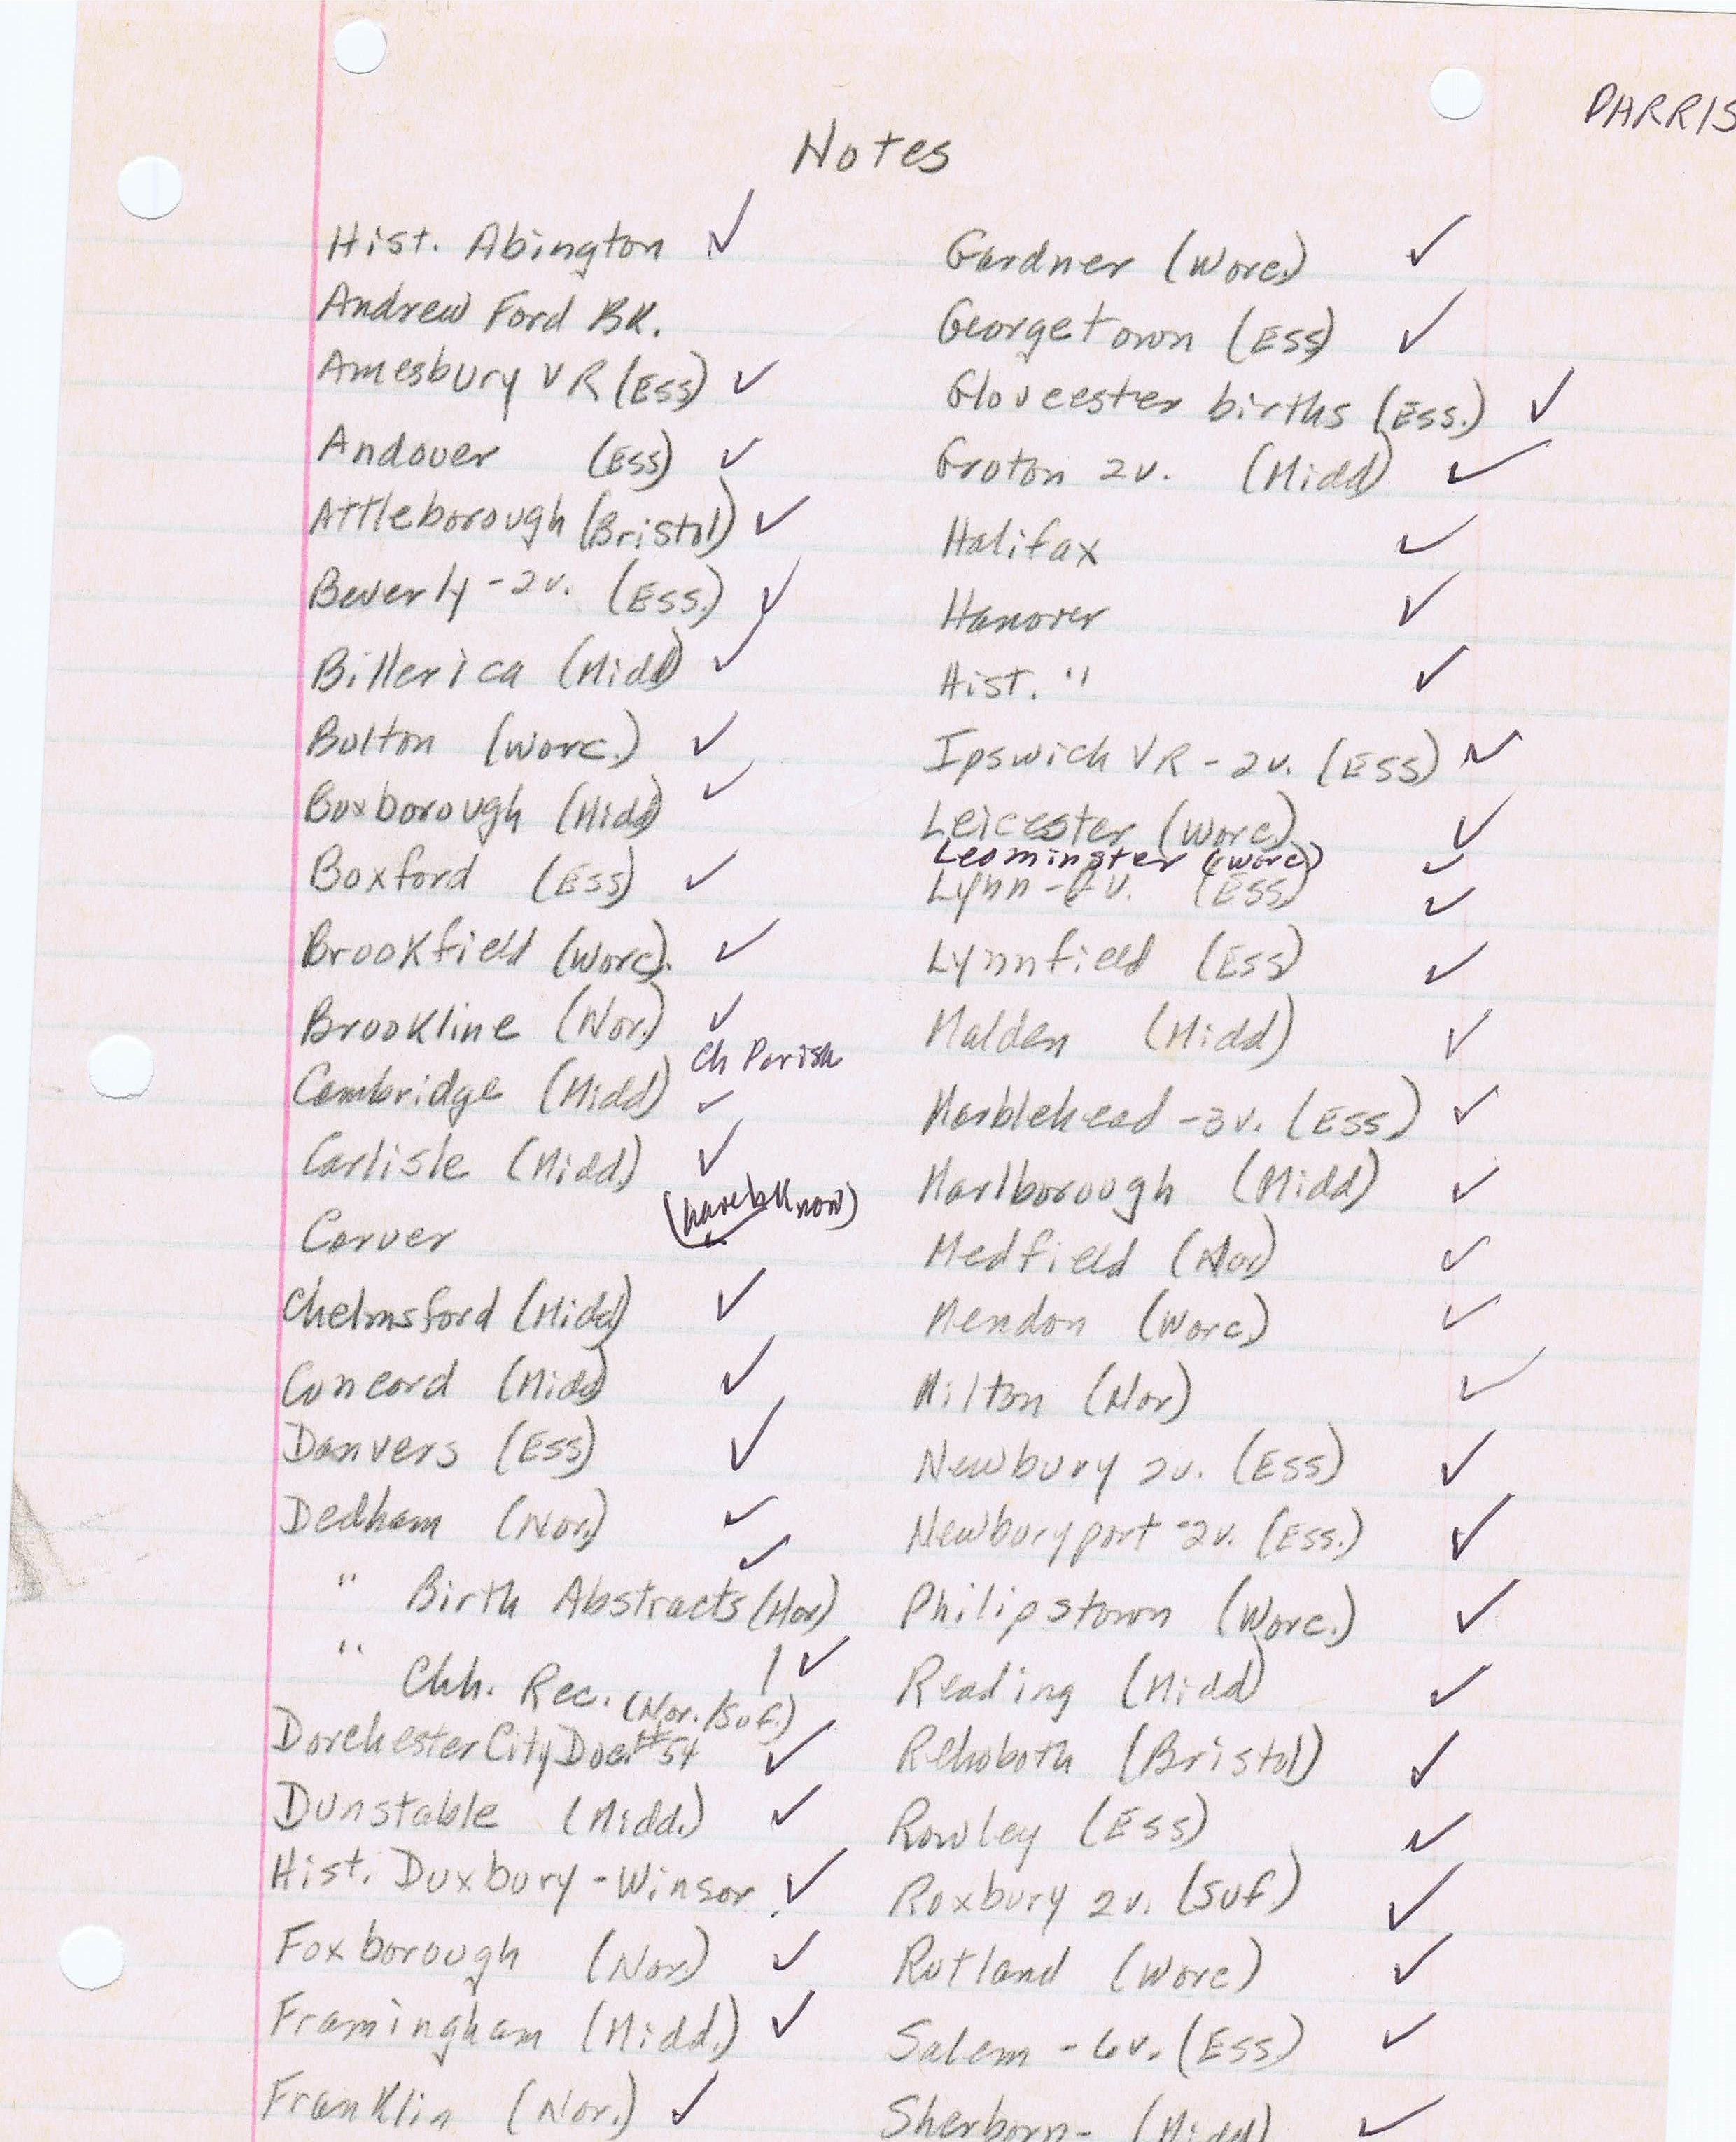 PARRIS
Notes
Hist. Abington ✓
Andrew Ford BK.
Amesbury VR (Ess) ✓
Andover (Ess) ✓
Attleborough (Bristol) ✓
Beverly - 2v. (Ess.) ✓
Billerica (Midd) ✓
Bolton (Worc.) ✓
Boxborough (Midd) ✓
Boxford (Ess) ✓
Brookfield (Worc). ✓
Brookline (Nor.) ✓
Ch Parish
Cambridge (Midd) ✓
Carlisle (Midd) ✓
(have bk now)
Carver ✓
Chelmsford (Midd) ✓
Concord (Midd) ✓
Danvers (Ess) ✓
Dedham (Nor.) ✓
" Birth Abstracts (Nor) ✓
" Chh. Rec. (Nor./Suf.) ✓
Dorchester City Doc. #54 ✓
Dunstable (Midd.) ✓
Hist. Duxbury - Winsor ✓
Foxborough (Nor.) ✓
Framingham (Midd.) ✓
Franklin (Nor.) ✓
Gardner (Worc.) ✓
Georgetown (Ess) ✓
Gloucester births (Ess.) ✓
Groton 2v. (Midd) ✓
Halifax ✓
Hanover ✓
Hist. " ✓
Ipswich VR - 2v. (Ess) ✓
Leicester (Worc.) ✓
Leominster (Worc) ✓
Lynn - v. (Ess) ✓
Lynnfield (Ess) ✓
Malden (Midd) ✓
Marblehead - 3v. (Ess) ✓
Marlborough (Midd) ✓
Medfield (Nor) ✓
Mendon (Worc) ✓
Milton (Nor) ✓
Newbury 2v. (Ess) ✓
Newburyport - 2v. (Ess.) ✓
Philipstown (Worc.) ✓
Reading (Midd) ✓
Rehoboth (Bristol) ✓
Rowley (Ess) ✓
Roxbury 2v. (Suf.) ✓
Rutland (Worc) ✓
Salem - 6v. (Ess) ✓
Sherborn - (Midd) ✓